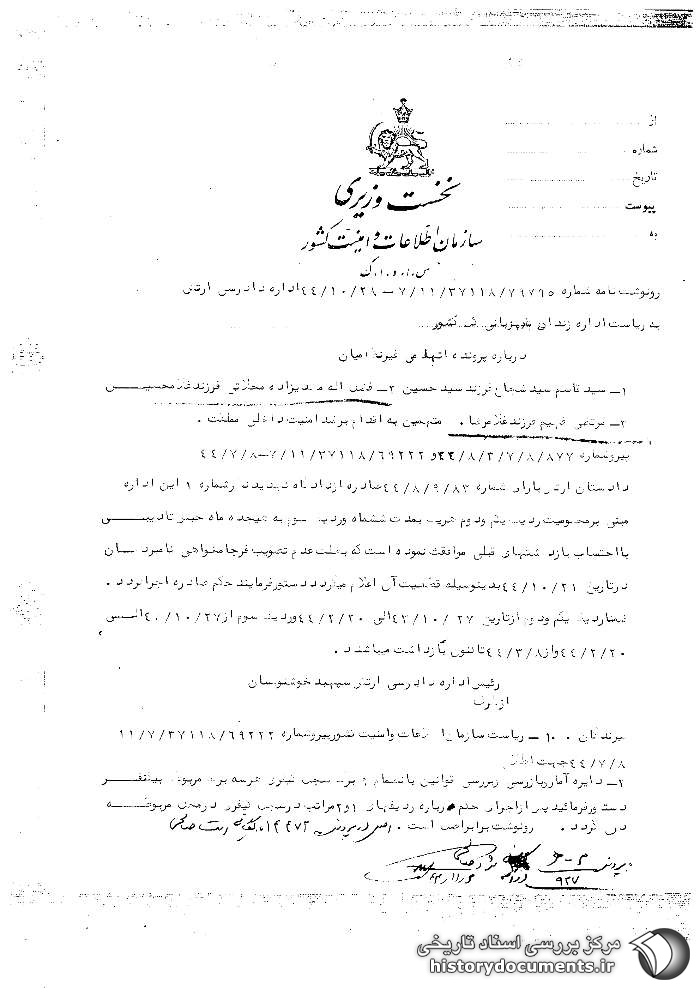 از
شماره
تاریخ
پیوست
به
نخست وزیری
سازمان اطلاعات و امنیت کشور
س.ا.و.ا.ک
رونوشت نامه شماره ۷/۱۱/۳۷۱۱۸/۷۹۷۹۵ – ۴۴/۱۰/۲۸ اداره دادرسی ارتش
به ریاست اداره زندان شهربانی کل کشور
درباره پرونده اتهامی غیرنظامیان
۱– سید قاسم سید شجاع فرزند سید حسین ۲– فضل اله مهدیزاده محلاتی فرزند غلامحسین
۳– مرتضی فهیم فرزند غلامرضا . متهمین به اقدام بر ضد امنیت داخلی مملکت .
پیرو شماره ۴۴/۸/۳/۷/۸/۸۷۷ و ۷/۱۱/۳۷۱۱۸/۶۹۲۲۲–۴۴/۷/۸
دادستان ارتش بارای شماره ۴۴/۸/۹/۸۳ صادره از دادگاه تجدیدنظر شماره ۱ این اداره
مبنی بر محکومیت ردیف یکم و دوم هریک بمدت ششماه و ردیف سوم به هیجده ماه حبس تادیبی
با احتساب بازداشتهای قبلی موافقت نموده است که بعلت عدم تصویب فرجامخواهی نامبردگان
در تاریخ ۴۴/۱۰/۲۱ بدینوسیله قطعیت آن اعلام میگردد دستور فرمایند حکم صادره اجرا گردد .
ضمنا ردیف یکم و دوم از تاریخ ۴۳/۱۰/۲۷ الی ۴۴/۲/۲۰ و ردیف سوم از ۴۳/۱۰/۲۷ الی
۴۴/۲/۲۰ و از ۴۴/۳/۸ تاکنون بازداشت میباشند .
رئیس اداره دادرسی ارتش سپهبد خوشنویسان
از طرف
گیرندگان . ۱– ریاست سازمان اطلاعات و امنیت کشور پیرو شماره ۱۱/۷/۳۷۱۱۸/۶۹۲۲۲
۴۴/۷/۸ جهت اطلاع
۲– دایره آمار و بازرسی و بررسی قوانین بانضمام برگ سجل کیفری هرسه برگ مربوطه بیانفر
دستور فرمائید پس از اجرای حکم درباره ردیفهای ۱و۲ مراتب در سجل کیفری در محل مربوطه
درج گردد . رونوشت برابر اصل است . اصل در پرونده
۹۲۷
مرکز بررسی اسناد تاریخی
historydocuments.ir